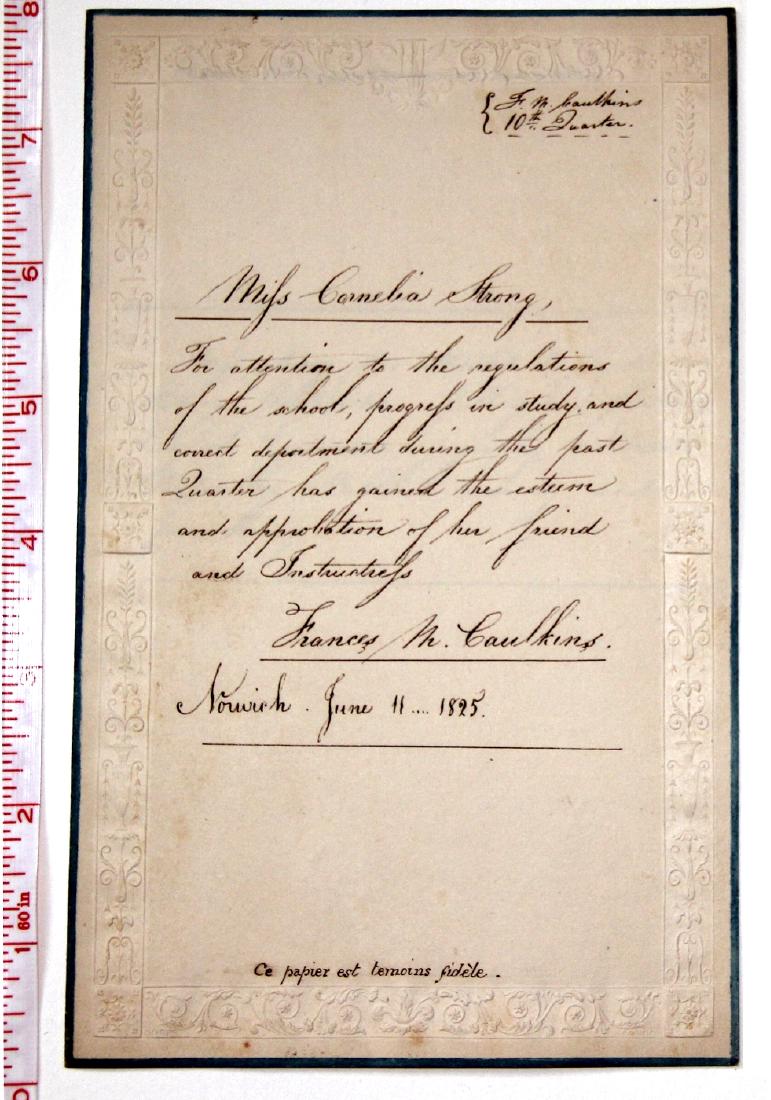 F. M. Caulkins
10th Quarter.
Miſs Cornelia Strong,
For attention to the regulations
of the school, progreſs in study, and
correct deportment during the past
Quarter has gained the esteem
and approbation of her friend
and Instructreſs
Frances M. Caulkins.
Norwich. June 11.... 1825.
Ce papier est temoins fidèle.
8
7
6
5
4
3
2
60 in
1
0